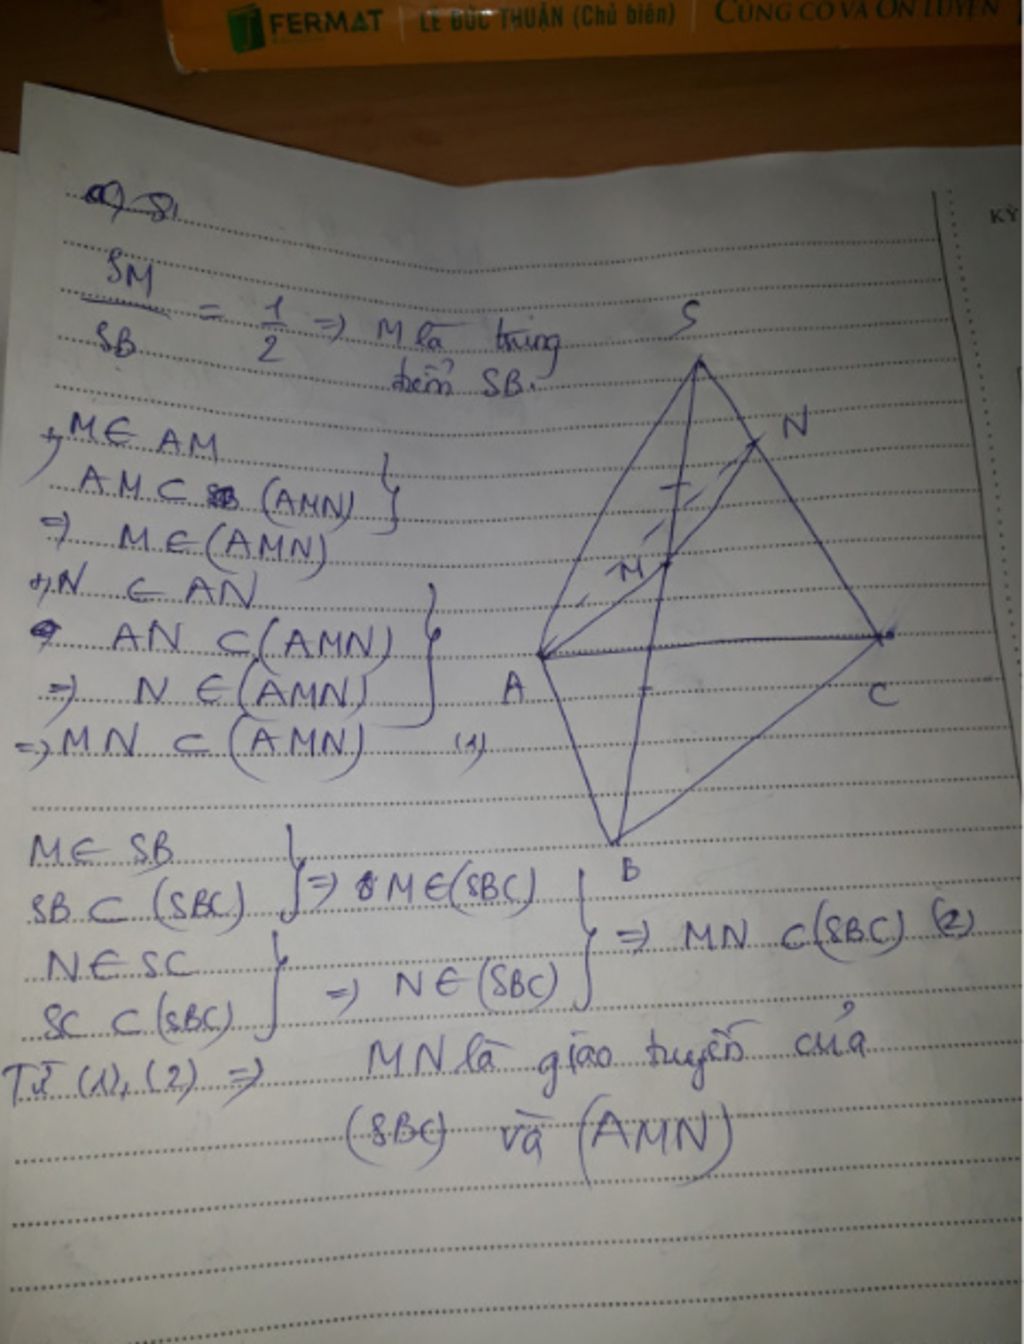 FERMAT LÊ ĐỨC THUẬN (Chủ biên) CỦNG CỐ VÀ ÔN LUYỆN
KỲ
a) S
SM/SB = 1/2 => M là trung
điểm SB.
S
N
M
A
C
B
+, M ∈ AM
AM ⊂ (AMN)
=> M ∈ (AMN)
+, N ∈ AN
AN ⊂ (AMN)
=> N ∈ (AMN)
=> MN ⊂ (AMN) (1)
M ∈ SB
SB ⊂ (SBC) } => M ∈ (SBC)
N ∈ SC
SC ⊂ (SBC) } => N ∈ (SBC)
} => MN ⊂ (SBC) (2)
Từ (1), (2) => MN là giao tuyến của
(SBC) và (AMN)